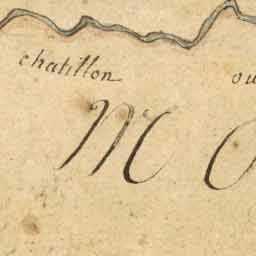 chatillon ou
M O